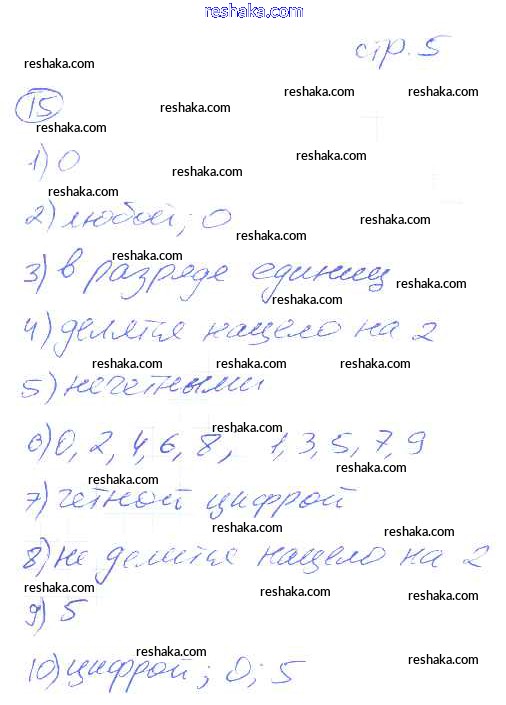 www.reshaka.com
стр. 5
reshaka.com
reshaka.com reshaka.com reshaka.com
15
reshaka.com
reshaka.com
1) 0
reshaka.com reshaka.com
reshaka.com
2) любой; 0
reshaka.com
reshaka.com
reshaka.com
3) в разряде единиц
reshaka.com
reshaka.com
4) делятся нацело на 2
reshaka.com reshaka.com reshaka.com
5) нечетными
reshaka.com
6) 0, 2, 4, 6, 8, 1, 3, 5, 7, 9
reshaka.com
reshaka.com
7) четной цифрой
reshaka.com
reshaka.com
8) не делится нацело на 2
reshaka.com
reshaka.com
reshaka.com
9) 5
reshaka.com
reshaka.com
10) цифрой; 0; 5